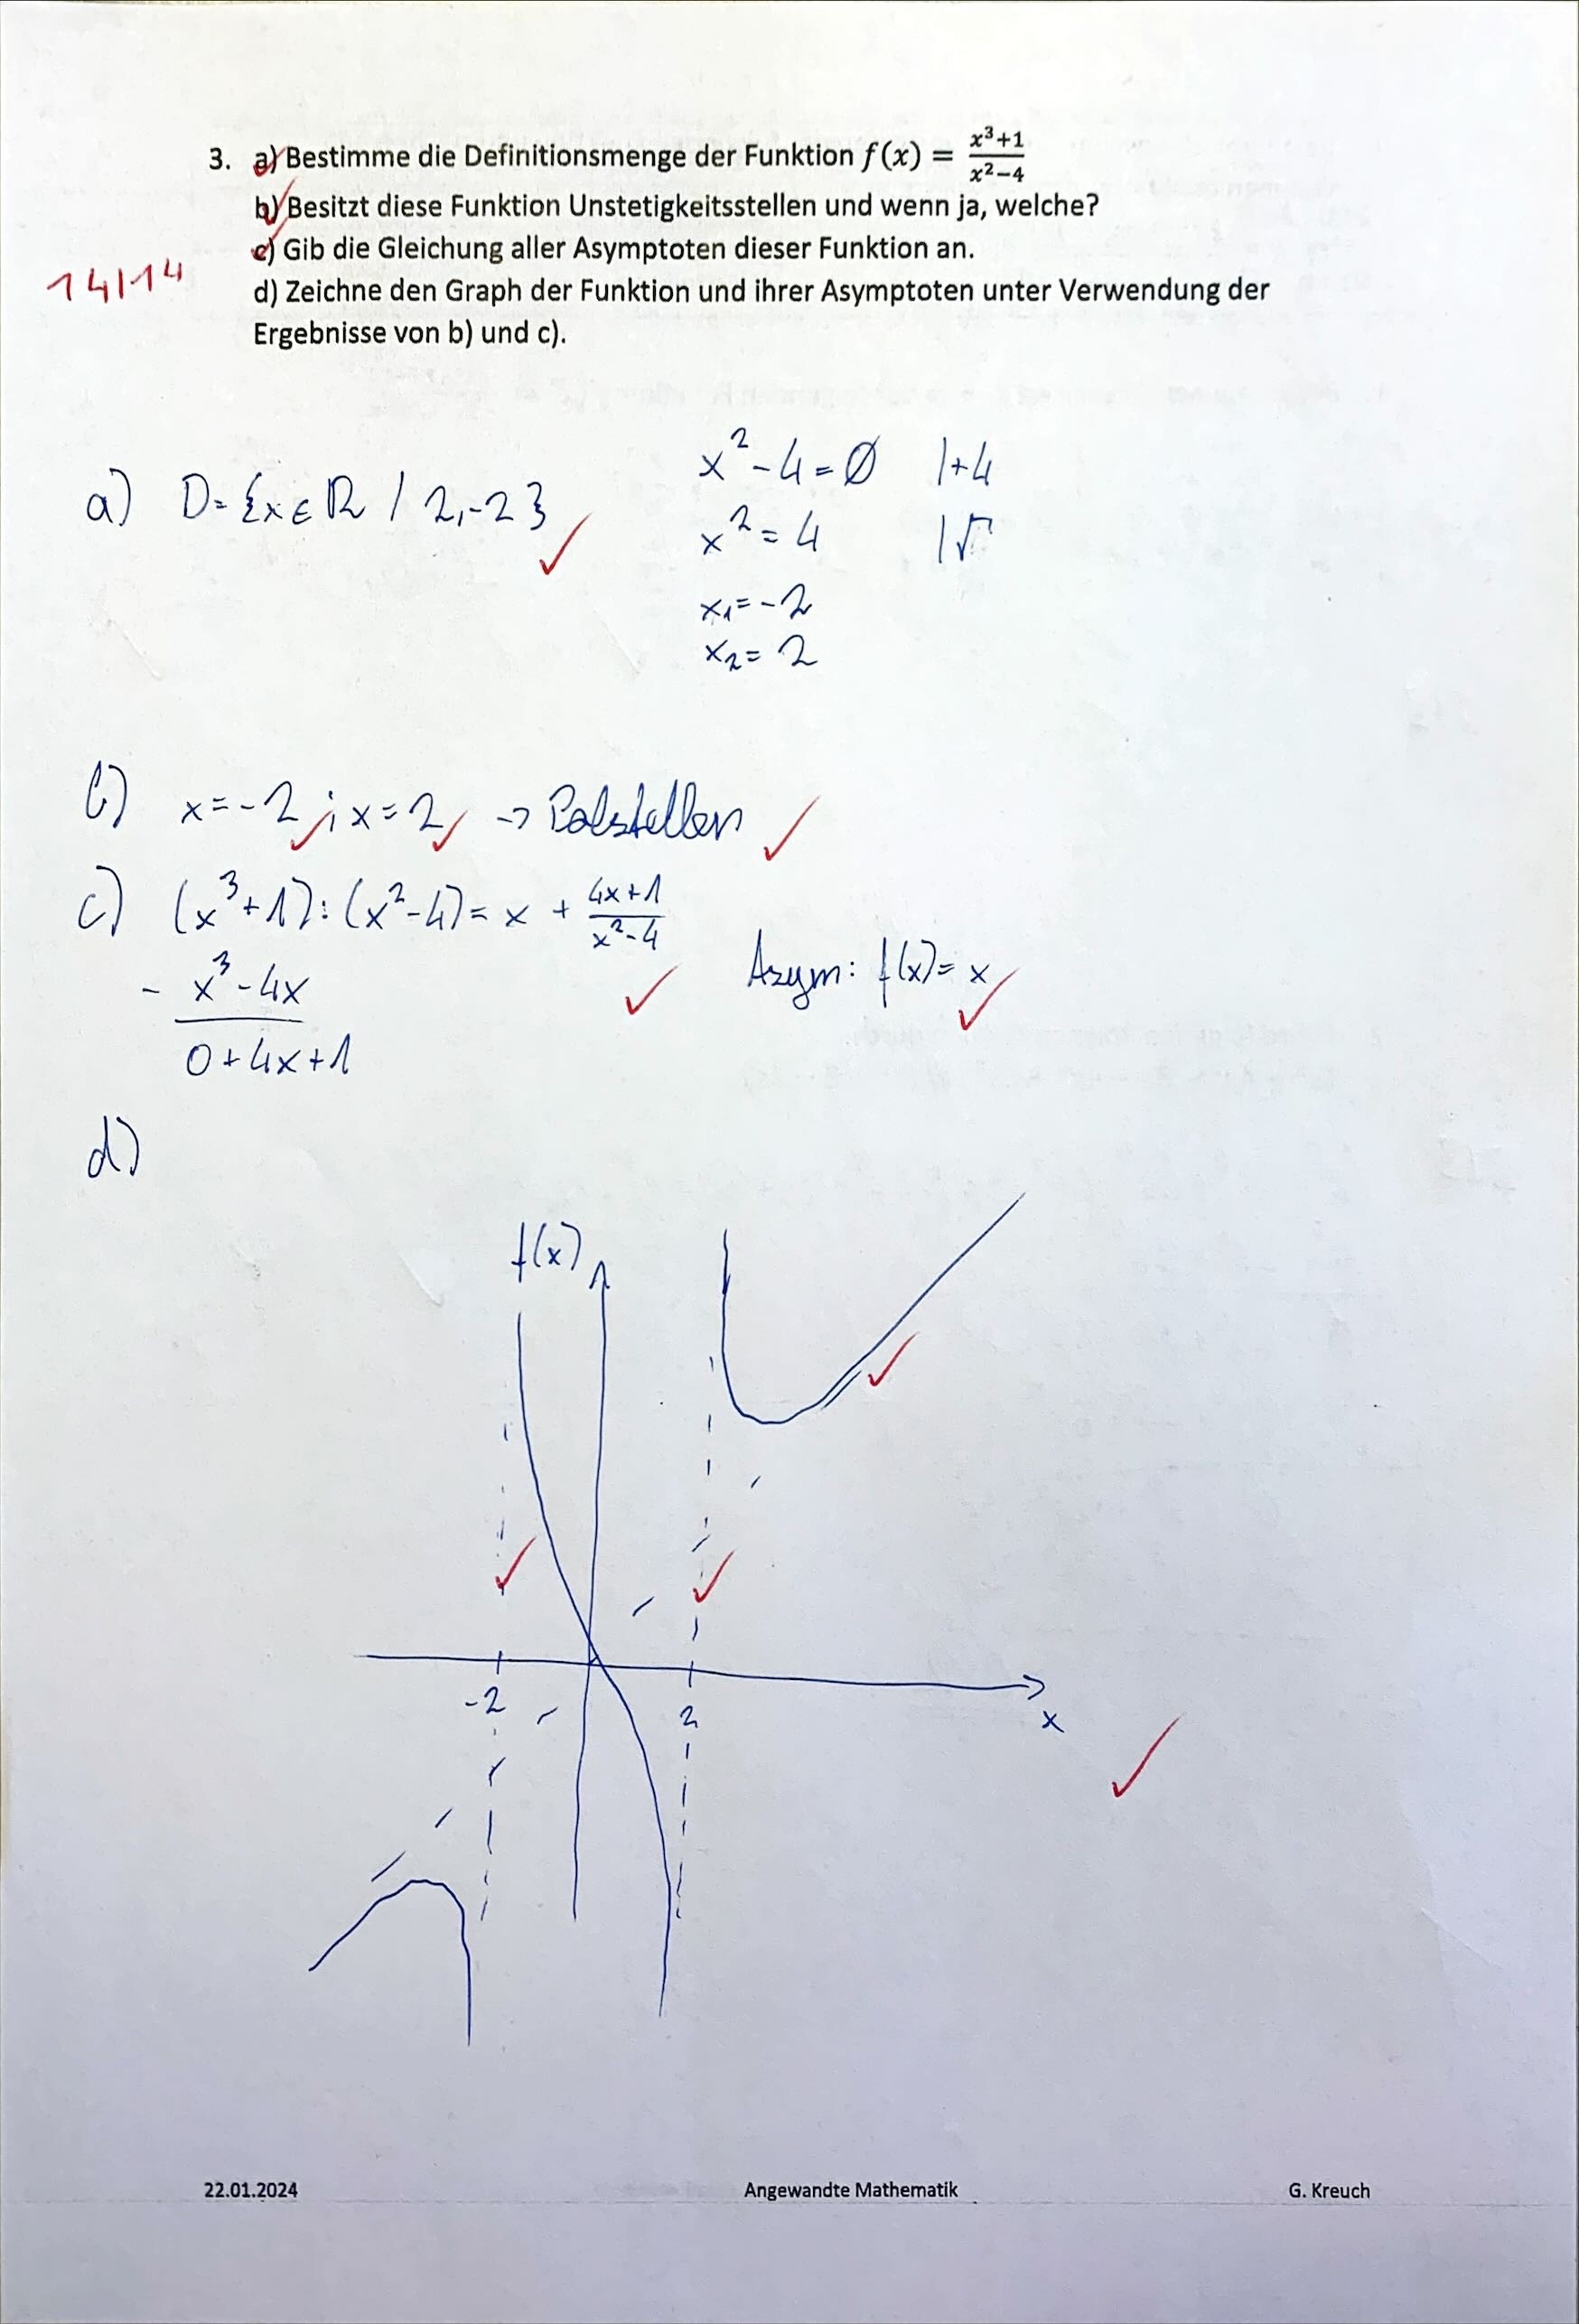 3. a) Bestimme die Definitionsmenge der Funktion f(x) = (x³+1)/(x²−4)
b) Besitzt diese Funktion Unstetigkeitsstellen und wenn ja, welche?
c) Gib die Gleichung aller Asymptoten dieser Funktion an.
14/14
d) Zeichne den Graph der Funktion und ihrer Asymptoten unter Verwendung der
Ergebnisse von b) und c).
a) D = {x ∈ ℝ / 2, -2}
x² - 4 = 0 |+4
x² = 4 |√
x₁ = -2
x₂ = 2
b) x = -2 ; x = 2 → Polstellen
c) (x³+1) : (x²-4) = x + (4x+1)/(x²-4)
- x³ - 4x
0 + 4x + 1
Asym: f(x) = x
d)
f(x)
-2
2
x
22.01.2024 Angewandte Mathematik G. Kreuch